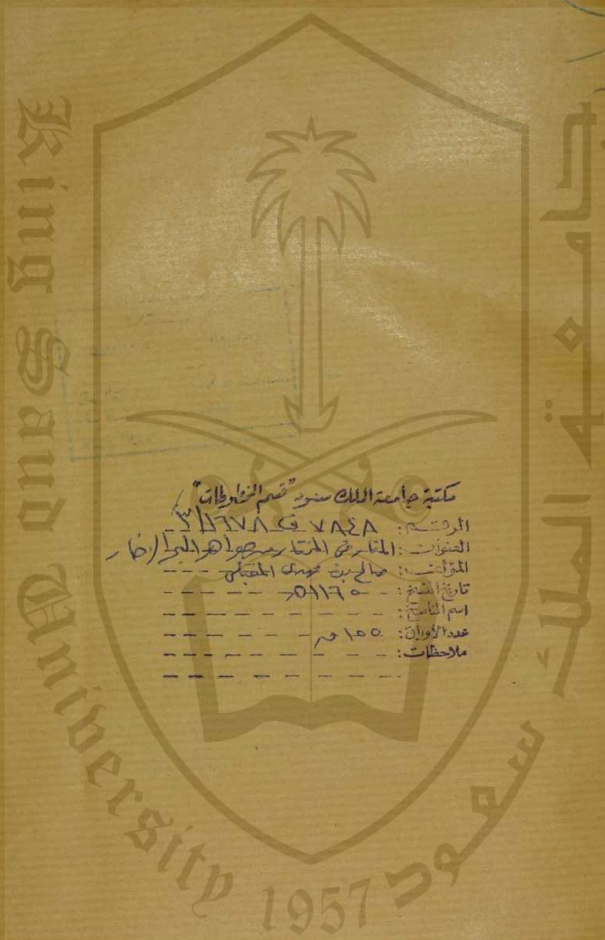 King Saud University
جامعة الملك سعود
1957
مكتبة جامعة الملك سعود "قسم المخطوطات"
الرقم: ٧٨٤٨ ف ١٦٧٨/٣
العنوان: المنار في المختار من جواهر البحر الزخار
المؤلف: صالح بن مهدي المقبلي
تاريخ النسخ: ١١٦٥هـ
اسم الناسخ:
عدد الأوراق: ١٥٥
ملاحظات: